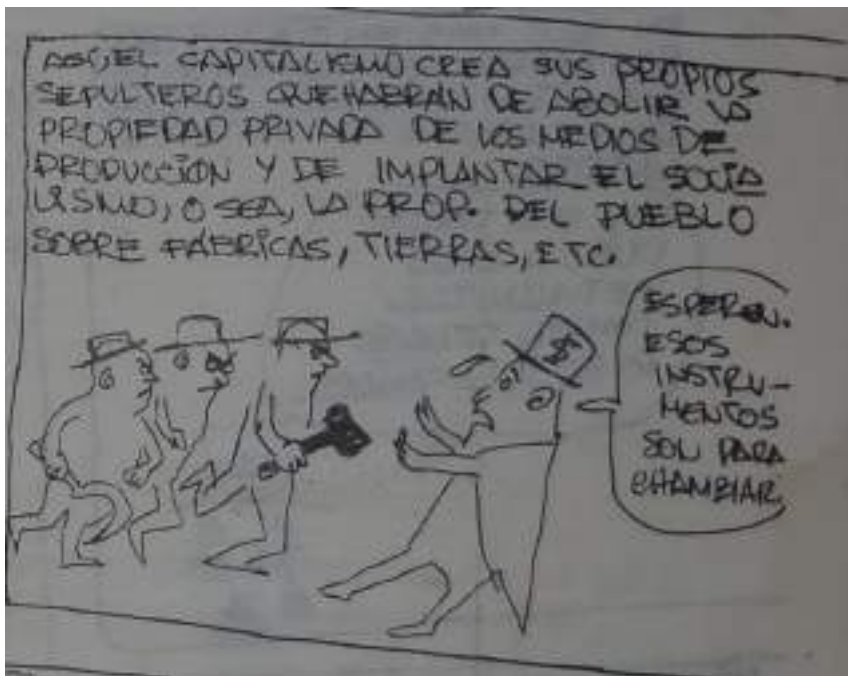 ASÍ, EL CAPITALISMO CREA SUS PROPIOS
SEPULTEROS QUE HABRÁN DE ABOLIR LA
PROPIEDAD PRIVADA DE LOS MEDIOS DE
PRODUCCIÓN Y DE IMPLANTAR EL SOCIA
LISMO, O SEA, LA PROP. DEL PUEBLO
SOBRE FÁBRICAS, TIERRAS, ETC.
$
ESPEREN.
ESOS
INSTRU-
MENTOS
SON PARA
CHAMBIAR